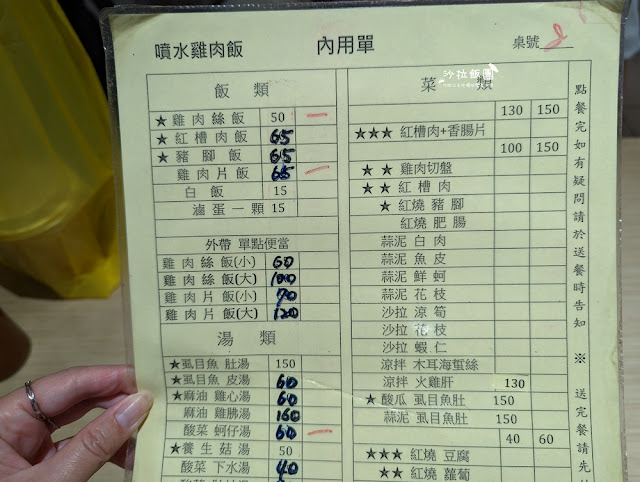 噴水雞肉飯 內用單 桌號 2
沙拉飯團
飯 類
★雞肉絲飯 50 一
★紅槽肉飯 65
★豬腳飯 65
雞肉片飯 65 一
白飯 15
滷蛋一顆 15
外帶 單點便當
雞肉絲飯(小) 60
雞肉絲飯(大) 100
雞肉片飯(小) 70
雞肉片飯(大) 120
湯 類
★虱目魚 肚湯 150
★虱目魚 皮湯 60
★麻油 雞心湯 60
麻油 雞胇湯 160
酸菜 蚵仔湯 60 一
★養生菇湯 50
酸菜 下水湯 40
菜 類
130 150
★★★ 紅槽肉+香腸片
100 150
★★ 雞肉切盤
★★ 紅槽肉
★ 紅燒豬腳
紅燒肥腸
蒜泥 白肉
蒜泥 魚皮
蒜泥 鮮蚵
蒜泥 花枝
沙拉 涼筍
沙拉 花枝
沙拉 蝦仁
涼拌 木耳海蜇絲
涼拌 火雞肝 130
★酸瓜 虱目魚肚 150
蒜泥 虱目魚肚 150
40 60
★★★ 紅燒 豆腐
★★ 紅燒 蘿蔔
點餐完如有疑問請於送餐時告知 ※ 送完餐請先